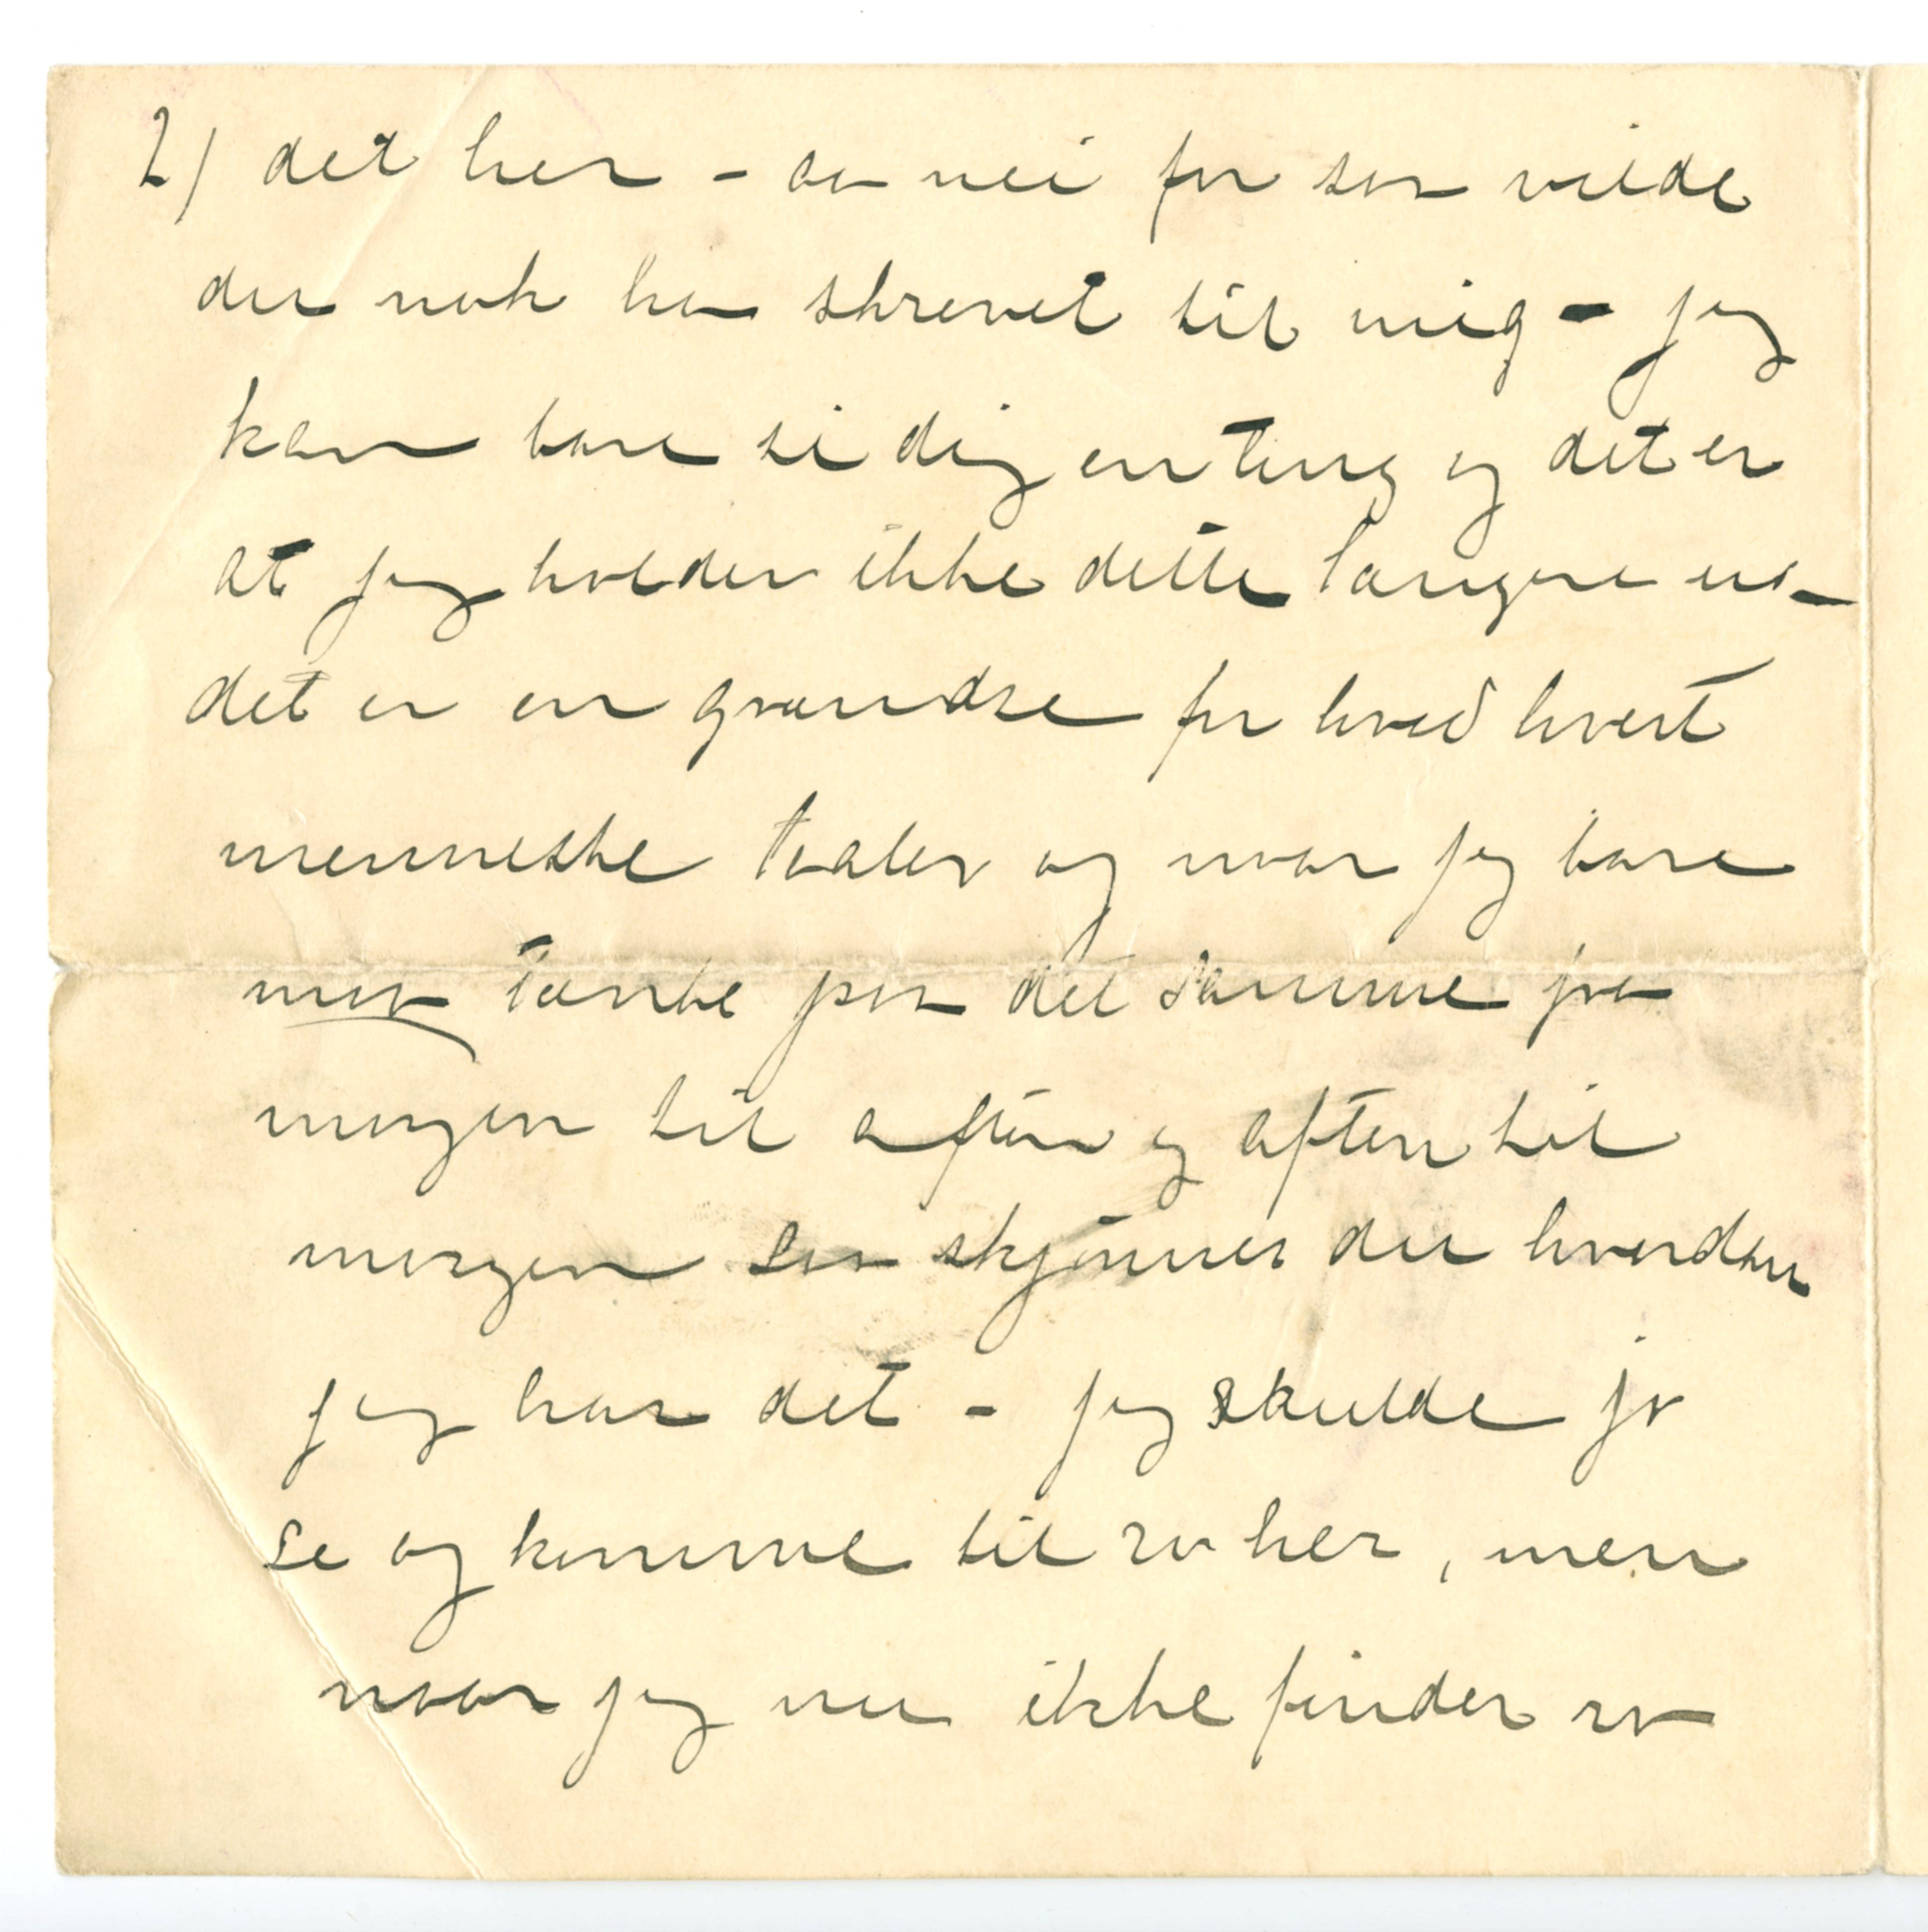 2/ det her - aa nei for saa vilde
du nok ha skrevet til mig - jeg
kan bare si dig en ting og det er
at jeg holder ikke dette længere ut -
det er en grændse for hvad hvert
menneske taaler og naar jeg bare
maa tænke paa det samme fra
morgen til aften og aften til
morgen saa skjönner du hvordan
jeg har det - jeg skulde jo
se og komme til ro her, men
naar jeg nu ikke finder ro